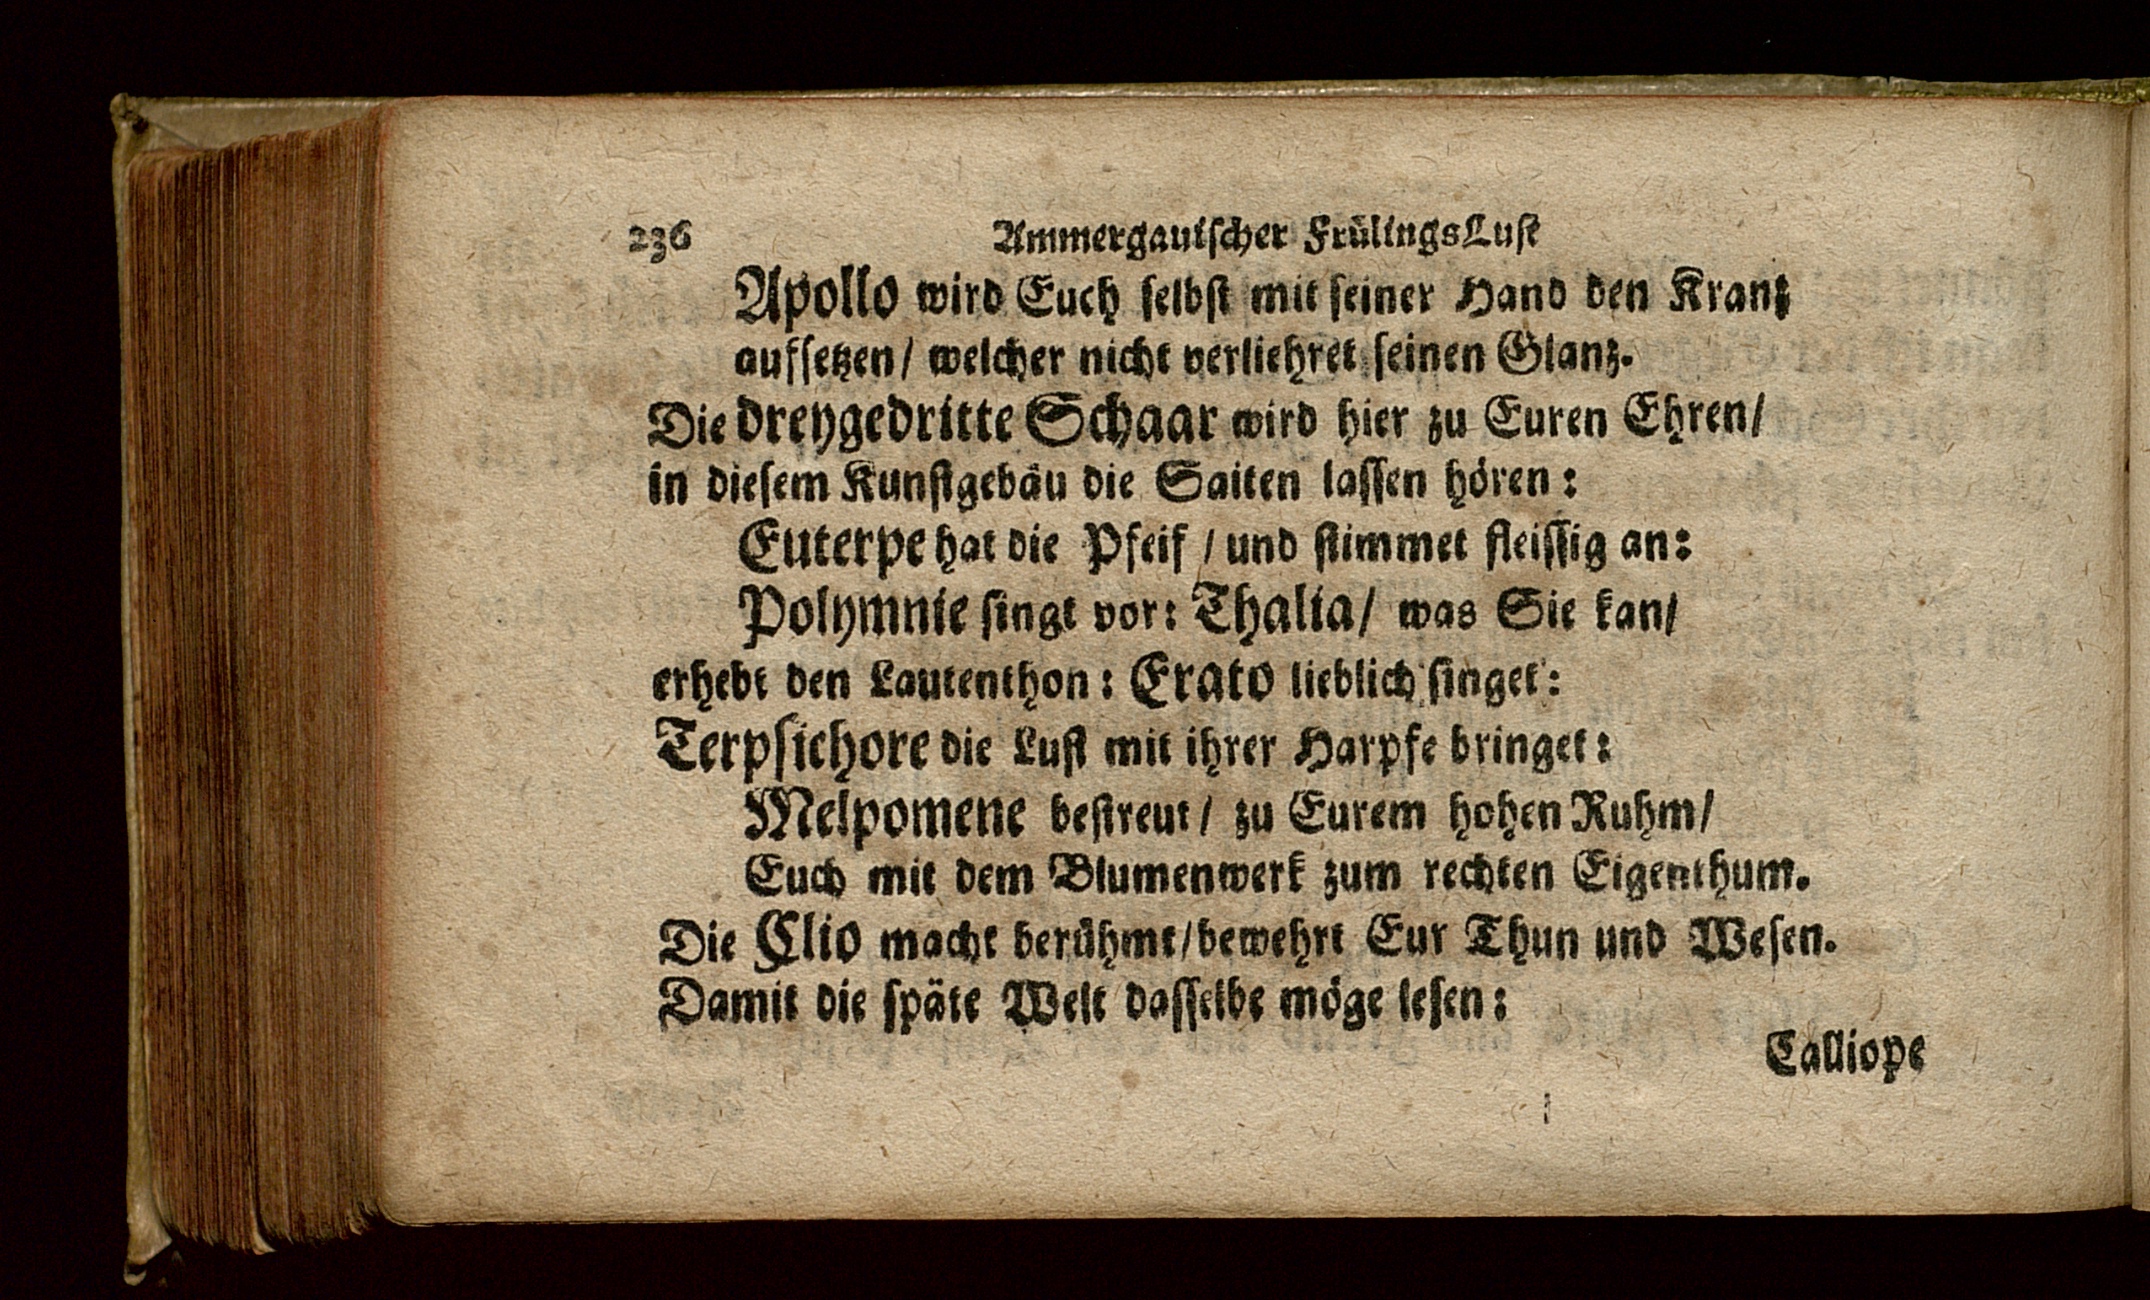 236 Ammergauiſcher FrülingsLuſt
Apollo wird Euch ſelbſt mit ſeiner Hand den Kranz
aufſetzen/ welcher nicht verliehret ſeinen Glanz.
Die dreygedritte Schaar wird hier zu Euren Ehren/
in dieſem Kunſtgebäu die Saiten laſſen hören:
Euterpe hat die Pfeif / und ſtimmet fleiſſig an:
Polymnie ſingt vor: Thalia/ was Sie kan/
erhebt den Lautenthon: Erato lieblich ſinget:
Terpſichore die Luſt mit ihrer Harpfe bringet:
Melpomene beſtreut/ zu Eurem hohen Ruhm/
Euch mit dem Blumenwerk zum rechten Eigenthum.
Die Clio macht berühmt/bewehrt Eur Thun und Weſen.
Damit die ſpäte Welt daſſelbe möge leſen:
Calliope